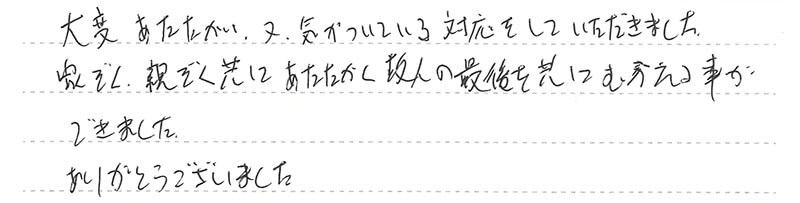 大変あたたかい、又、気がついている対応をしていただきました。
家ぞく、親ぞく共にあたたかく故人の最後を共にむかえる事が
できました。
ありがとうございました